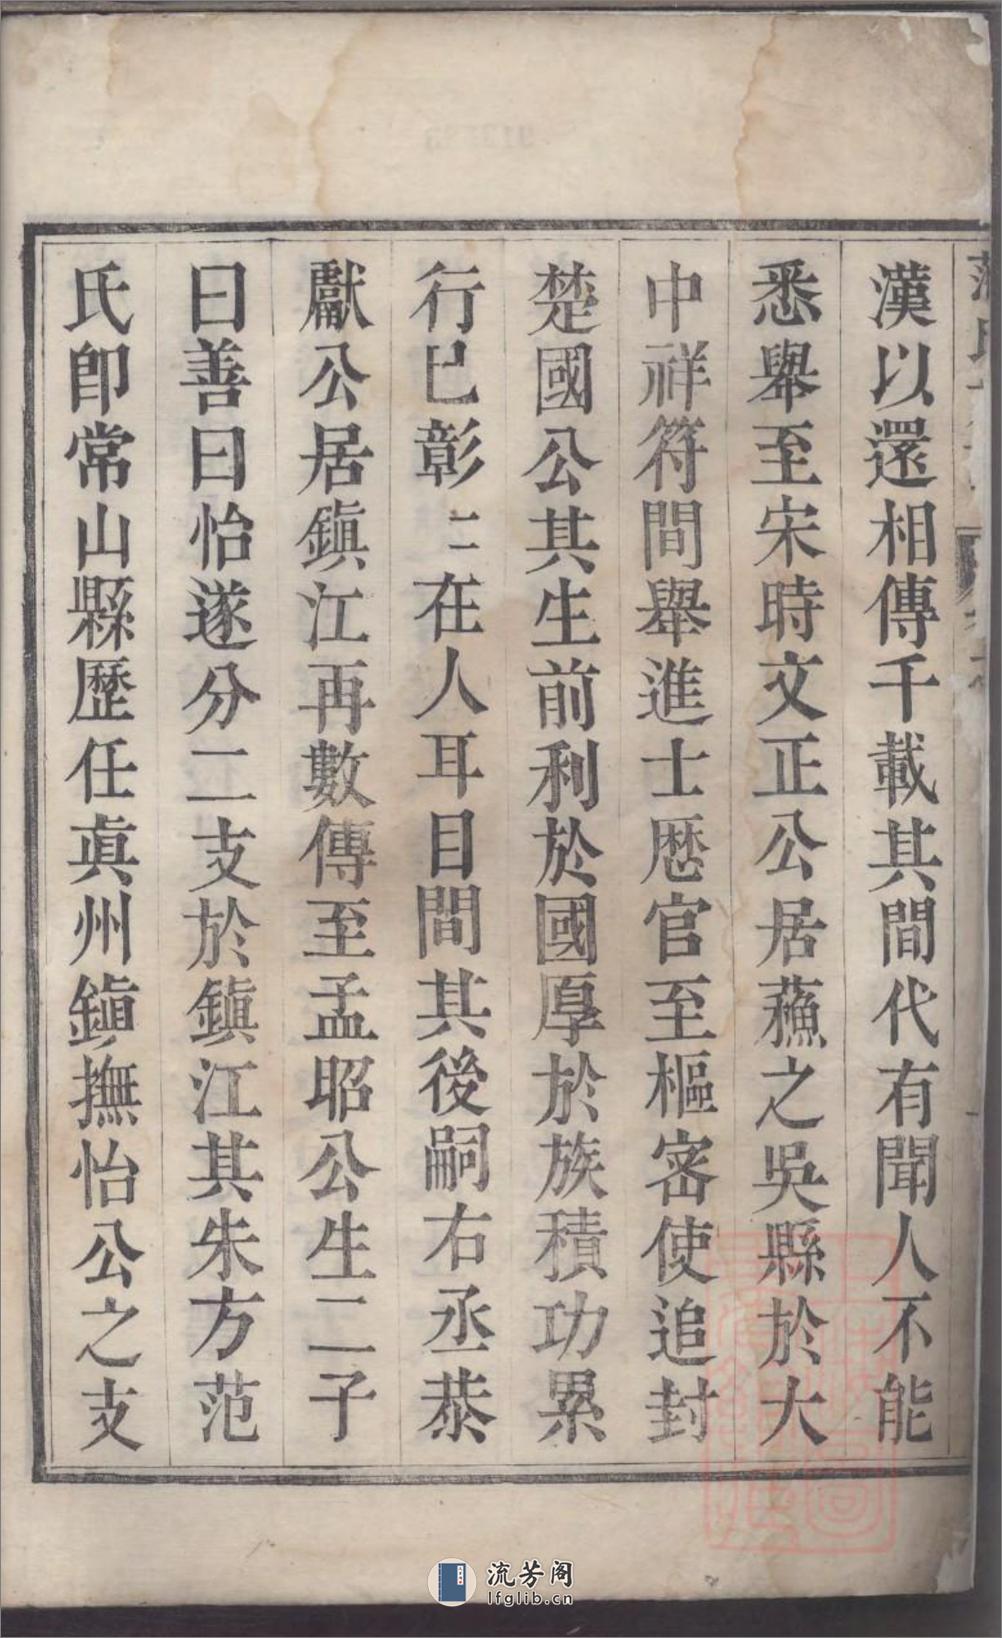 漢以還相傳千載其間代有聞人不能
悉舉至宋時文正公居蘓之吳縣於大
中祥符間舉進士歴官至樞宻使追封
楚國公其生前利於國厚於族積功累
行已彰〻在人耳目間其後嗣右丞恭
獻公居鎮江再數傳至孟昭公生二子
曰善曰怡遂分二支於鎮江其朱方范
氏卽常山縣歷任眞州鎭撫怡公之支
流芳阁
lfglib.cn